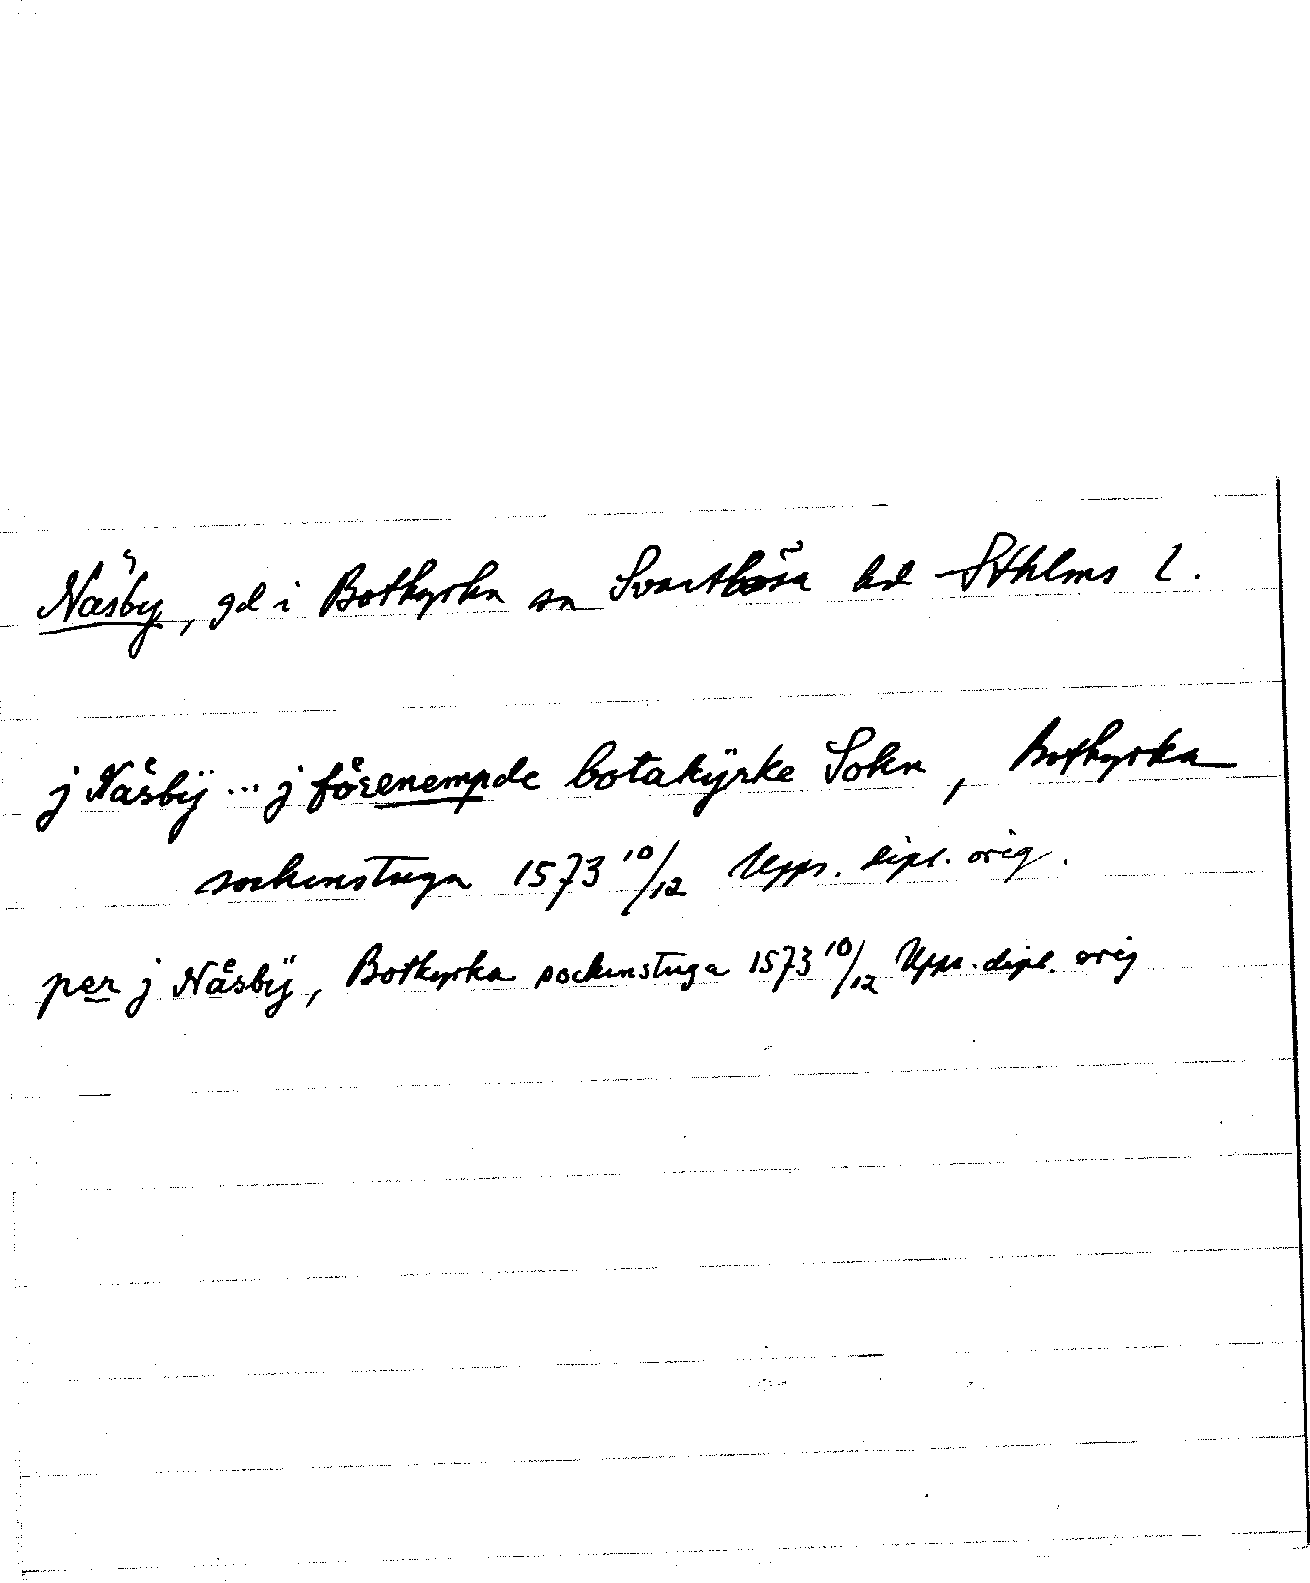 Näsby, gd i Botkyrka sn Svartlösa hd Sthlms l.
j Nåsbÿ ... j fôrenempde botakÿrke Sokn, Botkyrka
sockenstuga 1573 10/12 Upps. dipl. orig.
per j Nåsbÿ, Botkyrka sockenstuga 1573 10/12 Upps. dipl. orig